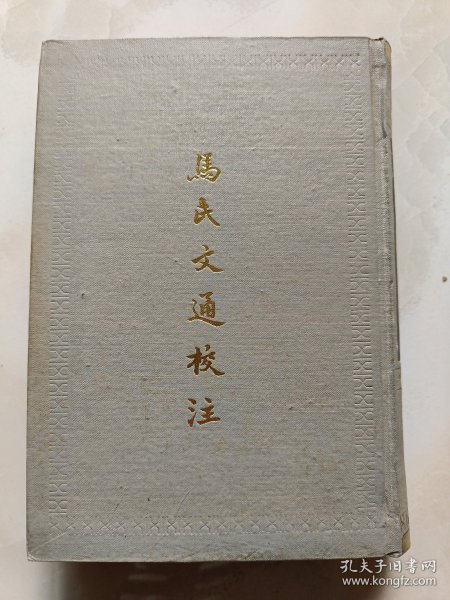 馬氏文通校注
孔夫子旧书网
www.kongfz.com